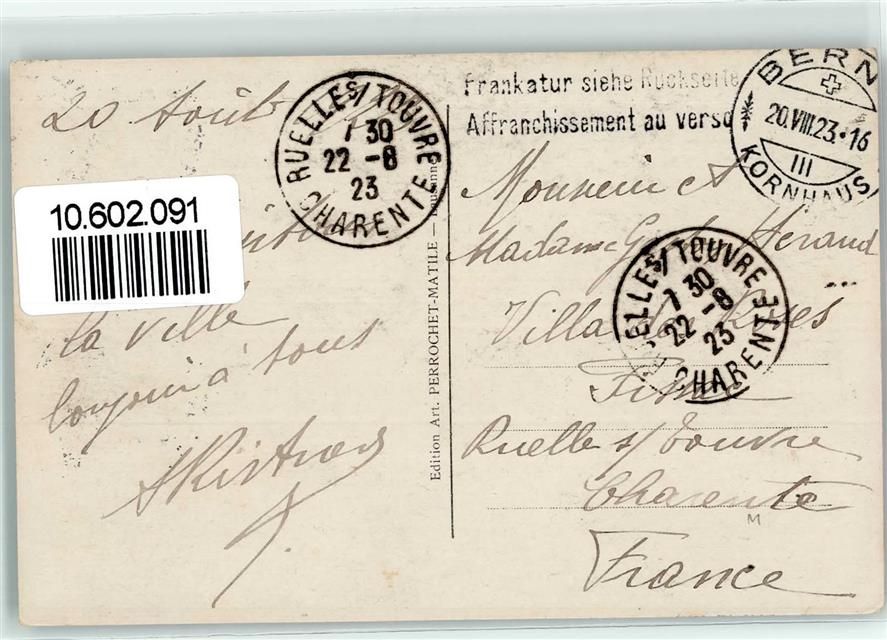 20 Août
10.602.091
la ville
toujours à tous
RUELLES/TOUVRE
7 30
22 -8
23
CHARENTE
Edition Art. PERROCHET-MATILE — Lausanne
Frankatur siehe Rückseite
Affranchissement au verso
BERN
20.VIII.23.-16
III
KORNHAUS
Monsieur et
Madame Heraud
Villa des Roses
ELLES/TOUVRE
7 30
22 -8
23
CHARENTE
Ruelle s/ Touvre
Charente
M
France